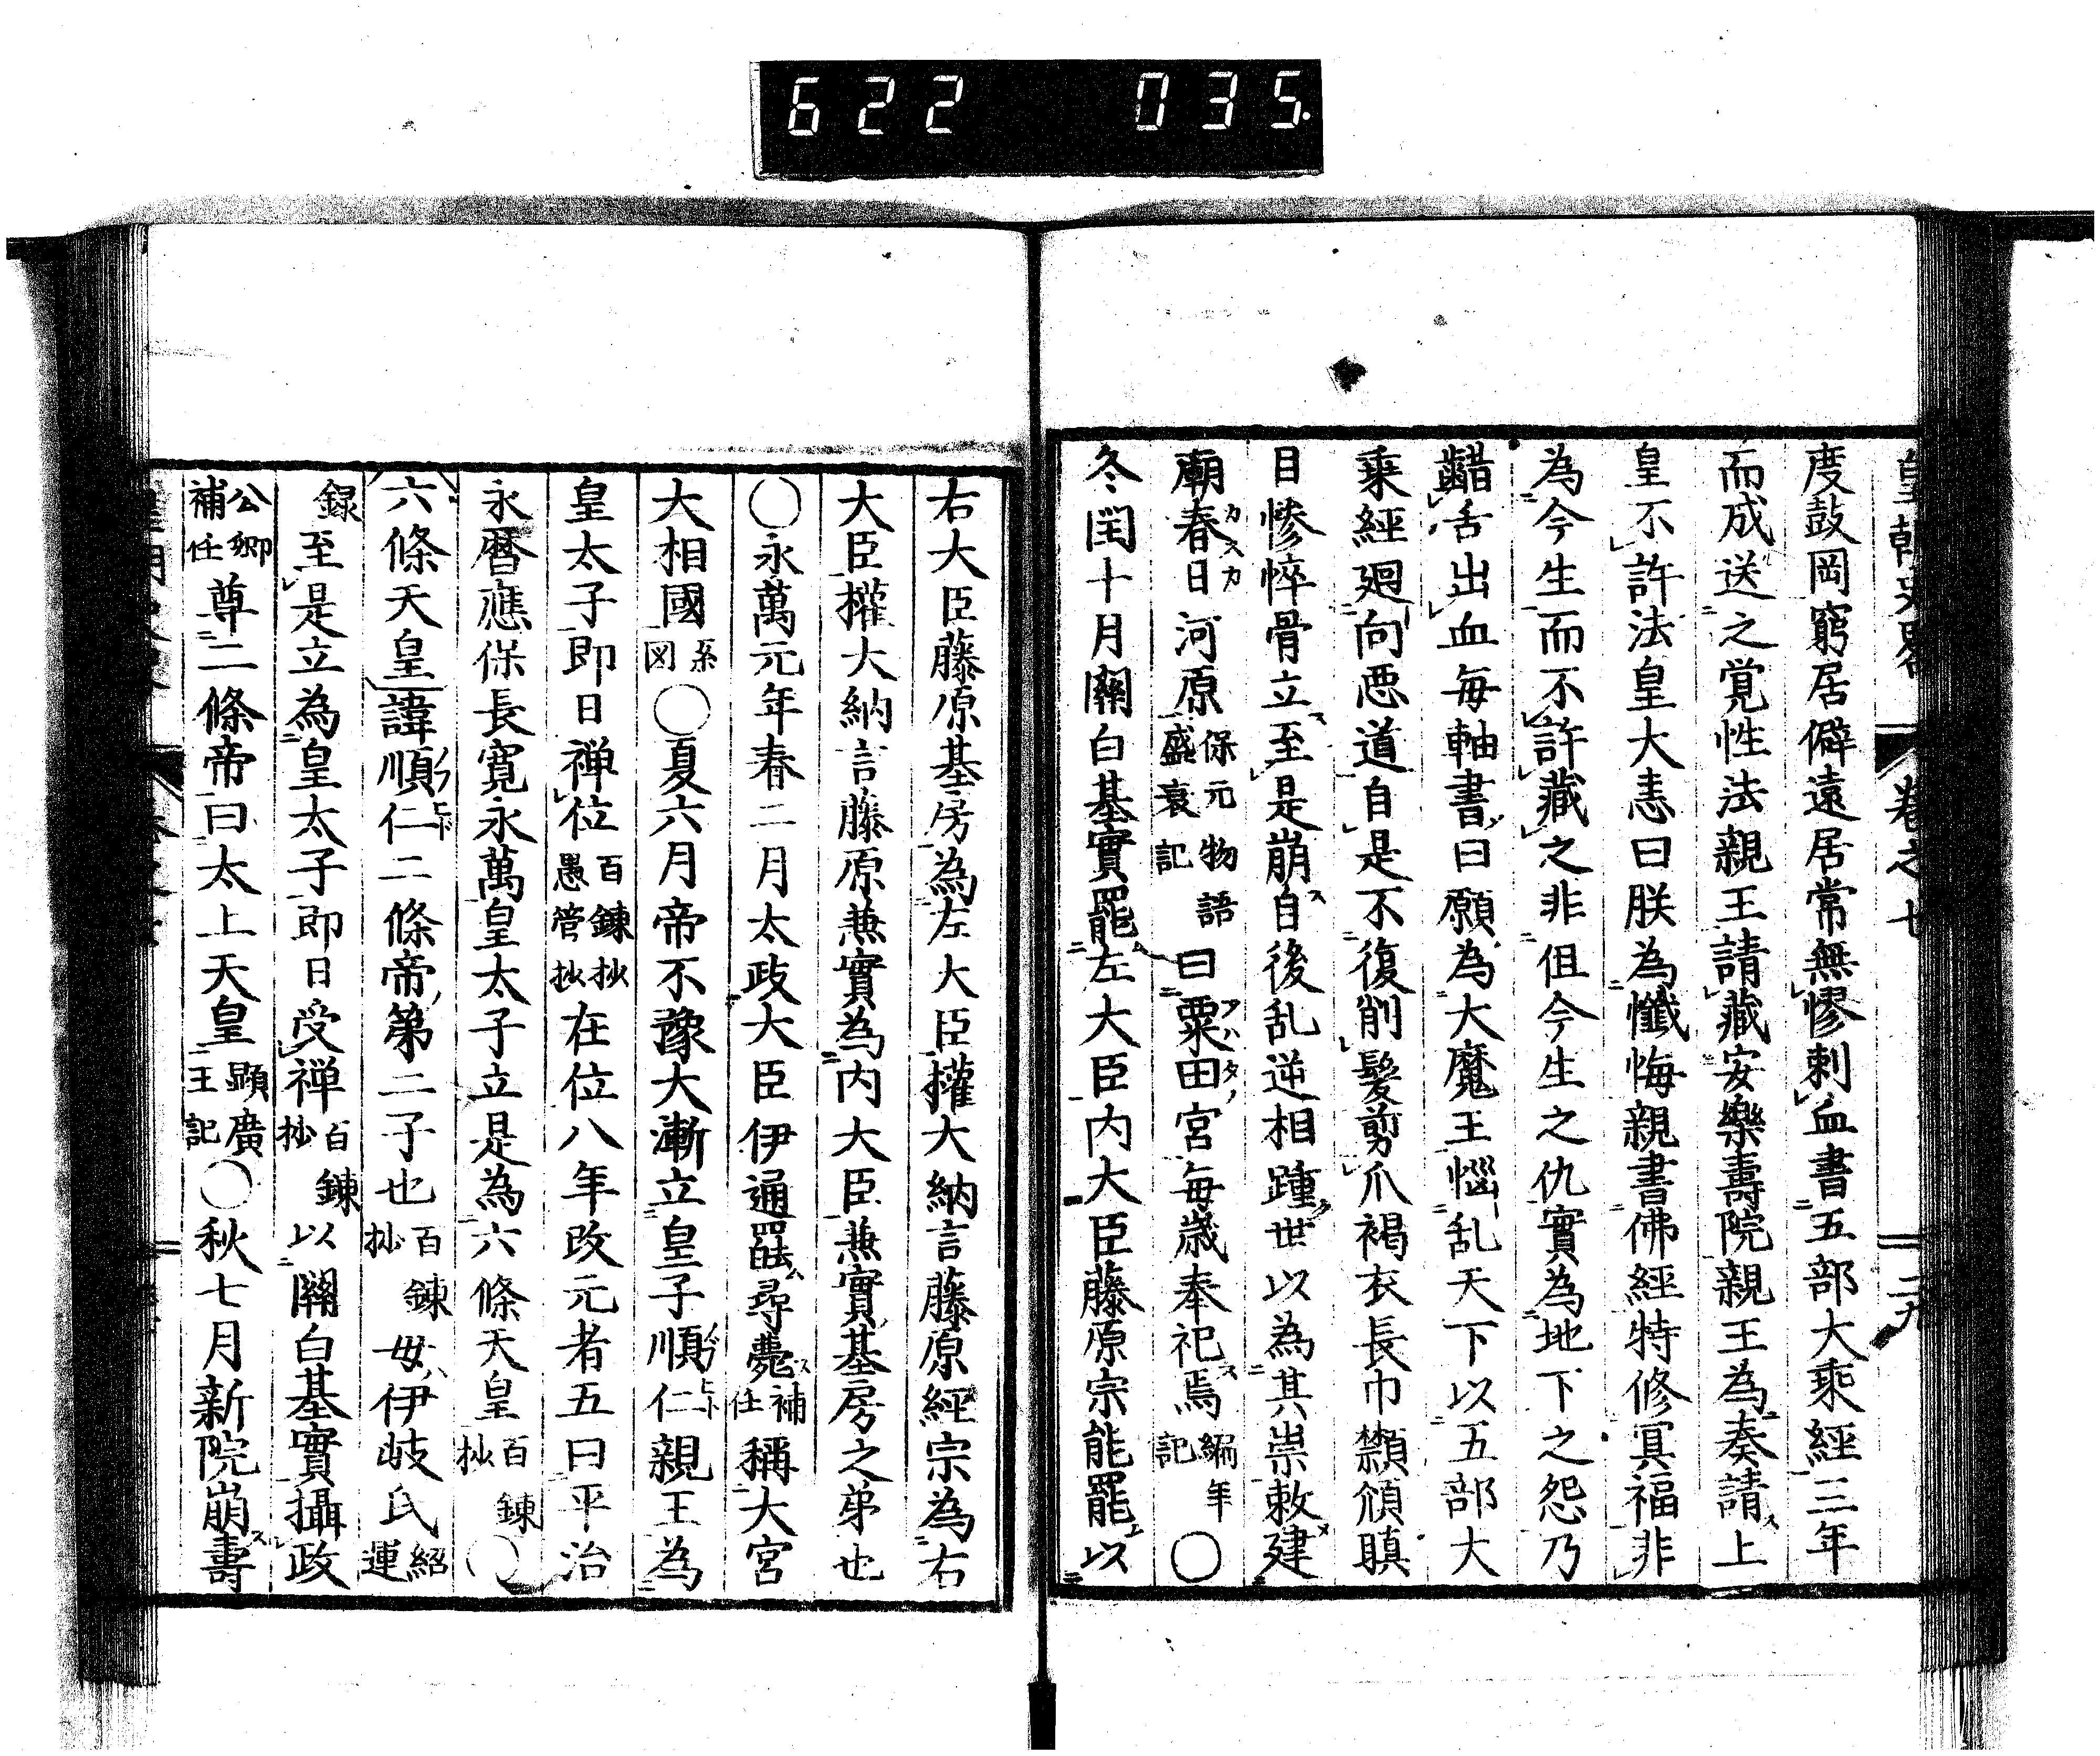 622 035.
皇朝史畧 卷之七 二九
度鼓岡窮居僻遠居常無憀刺血書五部大乘經三年
而成送之覚性法親王請藏安樂壽院親王為奏請上
皇不許法皇大恚曰朕為懺悔親書佛經特修冥福非
為今生而不許藏之非但今生之仇實為地下之怨乃
齰舌出血每軸書曰願為大魔王惱乱天下以五部大
乘經廻向悪道自是不復削髮剪爪褐衣長巾顦頠瞋
目慘悴骨立至是崩自後乱逆相踵世以為其崇敕建
廟春日河原保元物語盛衰記曰粟田宮每歳奉祀焉編年記○
冬閏十月關白基實罷左大臣内大臣藤原宗能罷以
右大臣藤原基房為左大臣權大納言藤原經宗為右
大臣權大納言藤原兼實為内大臣兼實基房之弟也
○永萬元年春二月太政大臣伊通罷尋薨補任稱大宮
大相國系図○夏六月帝不豫大漸立皇子順仁親王為
皇太子即日禅位百錬抄愚管抄在位八年改元者五曰平治
永暦應保長寛永萬皇太子立是為六條天皇百錬抄○
六條天皇諱順仁二條帝第二子也百錬抄母伊岐氏紹運
録至是立為皇太子即日受禅百錬抄以關白基實攝政
公卿補任尊二條帝曰太上天皇顯廣王記○秋七月新院崩壽